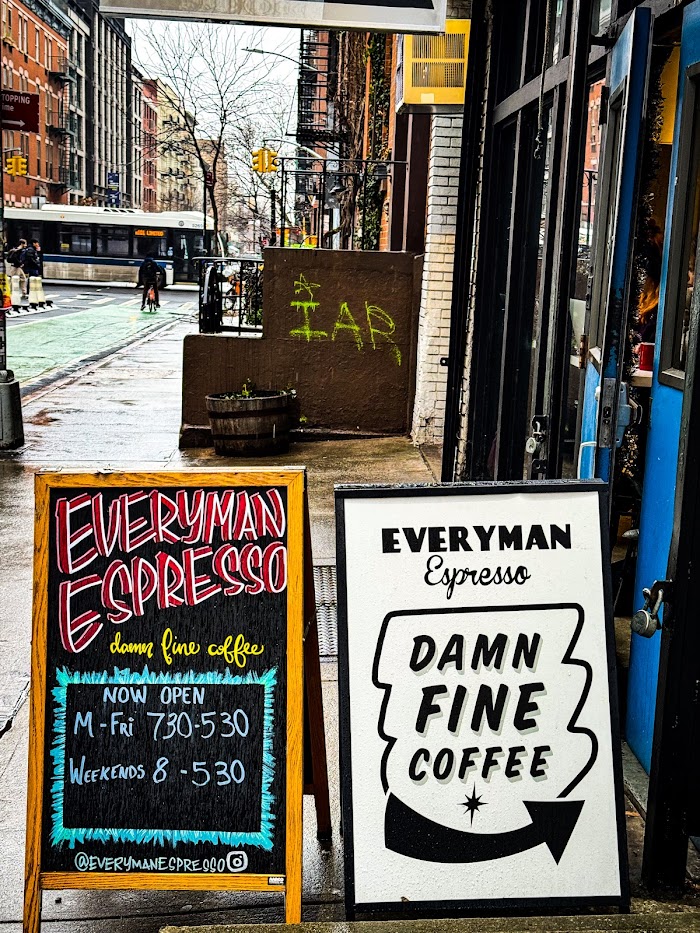 TOPPING
IAR
EVERYMAN
ESPRESSO
damn fine coffee
NOW OPEN
M-FRI 730-530
WEEKENDS 8-530
@EVERYMANESPRESSO
EVERYMAN
Espresso
DAMN
FINE
COFFEE